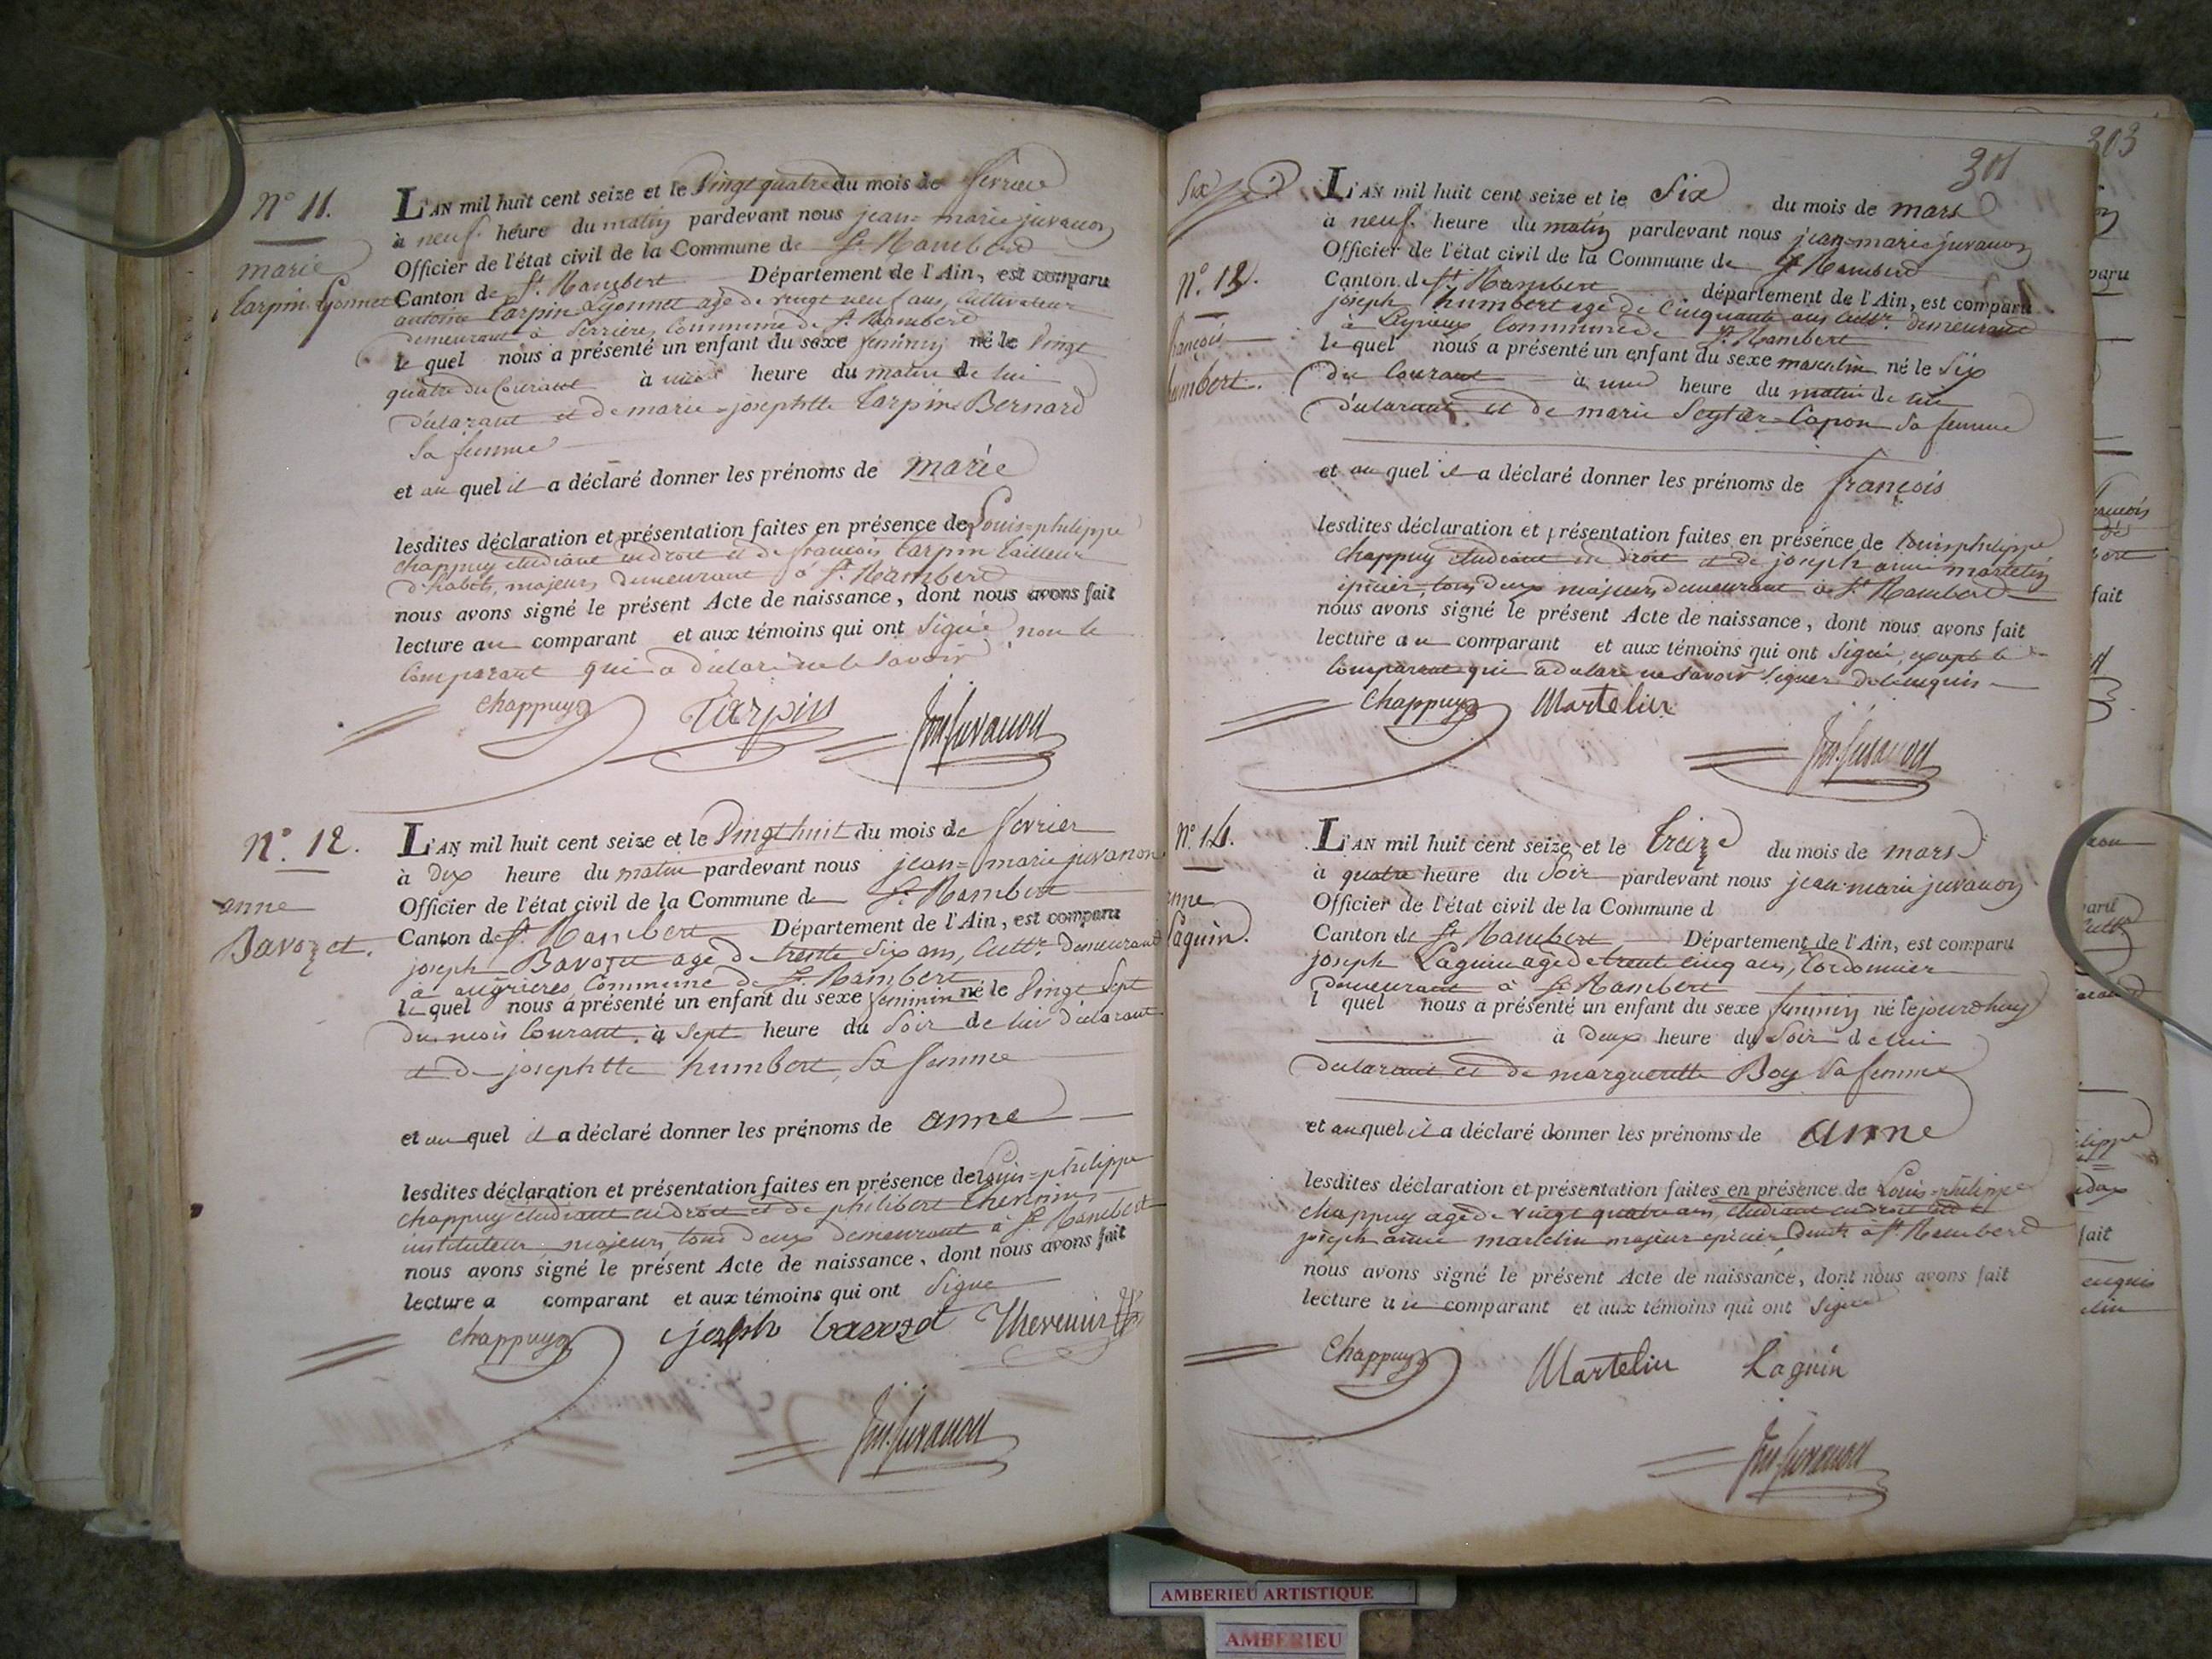 N° 11.
marie
tarpin Lyonnet
L'AN mil huit cent seize et le Vingt quatre du mois de fevrier
à neuf heure du matin pardevant nous jean=marie juvanon
Officier de l'état civil de la Commune de St. Rambert
Canton de St. Rambert Département de l'Ain, est comparu
antoine tarpin Lyonnet agé de vingt neuf ans, Cultivateur
demeurant à Serrieres Commune de St. Rambert
le quel nous a présenté un enfant du sexe feminin né le Vingt
quatre du Courant à une heure du matin de lui
déclarant et de marie=josephtte tarpin Bernard
Sa femme
et au quel il a déclaré donner les prénoms de marie
lesdites déclaration et présentation faites en présence de Louis=philippe
chappuy etudiant en droit et de françois tarpin tailleur
d'habits, majeurs demeurant à St. Rambert
nous avons signé le présent Acte de naissance, dont nous avons fait
lecture au comparant et aux témoins qui ont Signé, non le
Comparant qui a déclaré ne le Savoir
Chappuy Tarpin Jm juvanon
N°. 12.
anne
Bavozet.
L'AN mil huit cent seize et le Vingt huit du mois de fevrier
à dix heure du matin pardevant nous jean=marie juvanon
Officier de l'état civil de la Commune de St. Rambert
Canton de St. Rambert Département de l'Ain, est comparu
joseph Bavozet agé de trente Six ans, Cultr. demeurant
à angrieres, Commune de St. Rambert
le quel nous a présenté un enfant du sexe feminin né le Vingt Sept
du mois Courant, à Sept heure du Soir de lui déclarant
et de josephtte humbert, Sa femme
et au quel il a déclaré donner les prénoms de anne
lesdites déclaration et présentation faites en présence de Louis=philippe
chappuy étudiant en droit et de philibert thevenin
instituteur, majeurs, tous deux demeurant à St. Rambert
nous avons signé le présent Acte de naissance, dont nous avons fait
lecture a comparant et aux témoins qui ont Signé
Chappuy joseph bavozet Thevenin
Jm. juvanon
301
Six
N°. 13.
françois
humbert.
L'AN mil huit cent seize et le Six du mois de mars
à neuf heure du matin pardevant nous jean=marie juvanon
Officier de l'état civil de la Commune de St. Rambert
Canton de St. Rambert département de l'Ain, est comparu
joseph humbert agé de Cinquante ans Cultr. demeurant
à Commune de St. Rambert
le quel nous a présenté un enfant du sexe masculin né le Six
du Courant à une heure du matin de lui
déclarant et de marie Seytier=Capon Sa femme
et au quel il a déclaré donner les prénoms de françois
lesdites déclaration et présentation faites en présence de Louis philippe
chappuy etudiant en droit et de joseph aimé martelin
épicier, tous deux majeurs demeurant à St Rambert
nous avons signé le présent Acte de naissance, dont nous avons fait
lecture au comparant et aux témoins qui ont Signé, excepté le
Comparant qui a déclaré ne Savoir Signer de ce enquis
Chappuy Martelin
Jm. juvanon
N°. 14.
anne
Laguin.
L'AN mil huit cent seize et le treize du mois de mars
à quatre heure du Soir pardevant nous jean marie juvanon
Officier de l'état civil de la Commune d
Canton de St Rambert Département de l'Ain, est comparu
joseph Laguin agé de trente cinq ans, Cordonnier
demeurant à St Rambert
l quel nous a présenté un enfant du sexe feminin né le jourdhuy
à deux heure du Soir de lui
déclarant et de marguerette Boy Sa femme
et au quel il a déclaré donner les prénoms de anne
lesdites déclaration et présentation faites en présence de Louis=philippe
chappuy agé de vingt quatre ans, étudiant en droit et
joseph aimé martelin majeur épicier à St. Rambert
nous avons signé le présent Acte de naissance, dont nous avons fait
lecture au comparant et aux témoins qui ont Signé
Chappuy Martelin Laguin
Jm juvanon
303
paru
fait
fait
AMBERIEU ARTISTIQUE
AMBERIEU